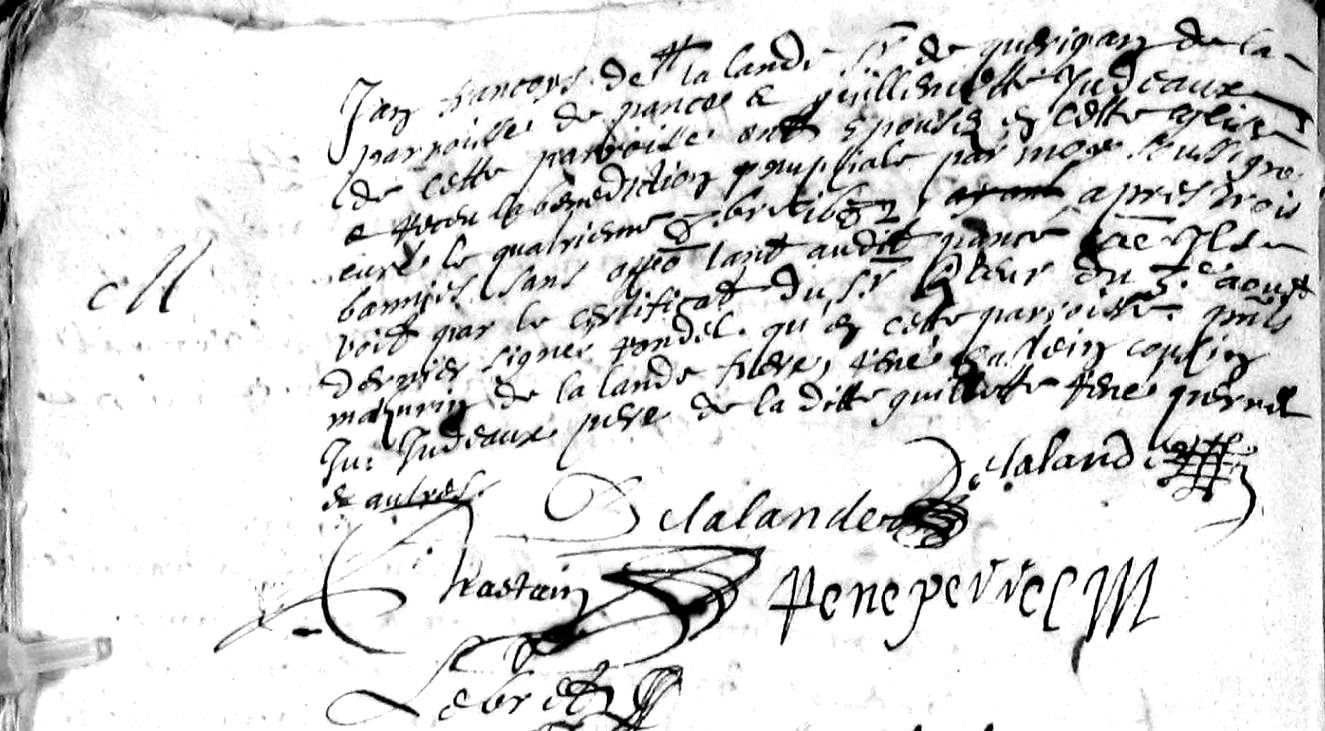 Jan francoys de la lande Sr de querigan de la
parroisse de pance & guillemette Judeaux
de cette parroisse ont Epousé en cette eglise
& receu la benediction nuptiale par moy soussigné
curé le quatrieme après trois
bannies sans oppo tant audit pancé Co͞e Il se
voit par le certificat du Sr Rteur du 3e aoust
dernier signé qu'en cette parroisse. pnts
mathurin de la lande frere, rené cousin
Judeaux pere de la ditte guillemette rené perriel
& autres.
M
Delalande
Delalande
Chastain
rene perriel M
Lebret